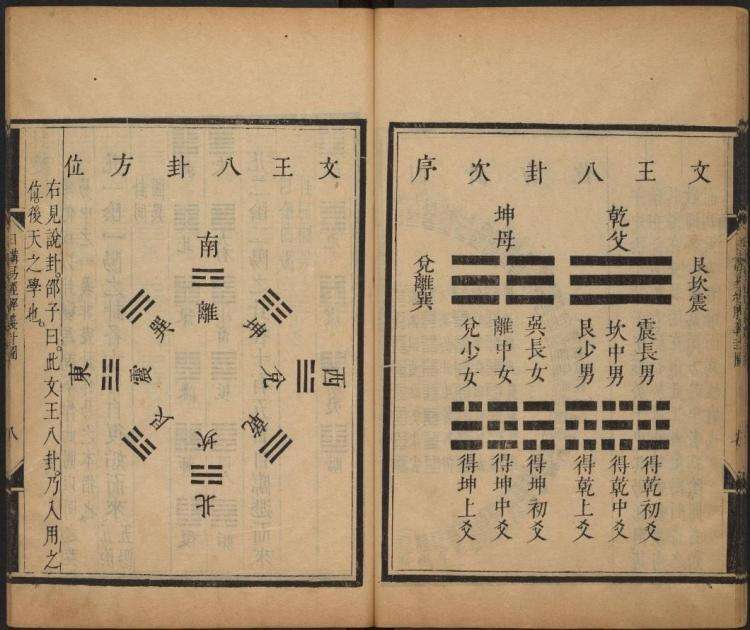 文王八卦次序
乾父
坤母
艮坎震
兌離巽
震長男
坎中男
艮少男
巽長女
離中女
兌少女
得乾初爻
得乾中爻
得乾上爻
得坤初爻
得坤中爻
得坤上爻
文王八卦方位
南
離
坤
兌
西
乾
坎
北
艮
震
東
巽
右見說卦。邵子曰。此文王八卦。乃入用之
位。後天之學也。
日講易經解義
八